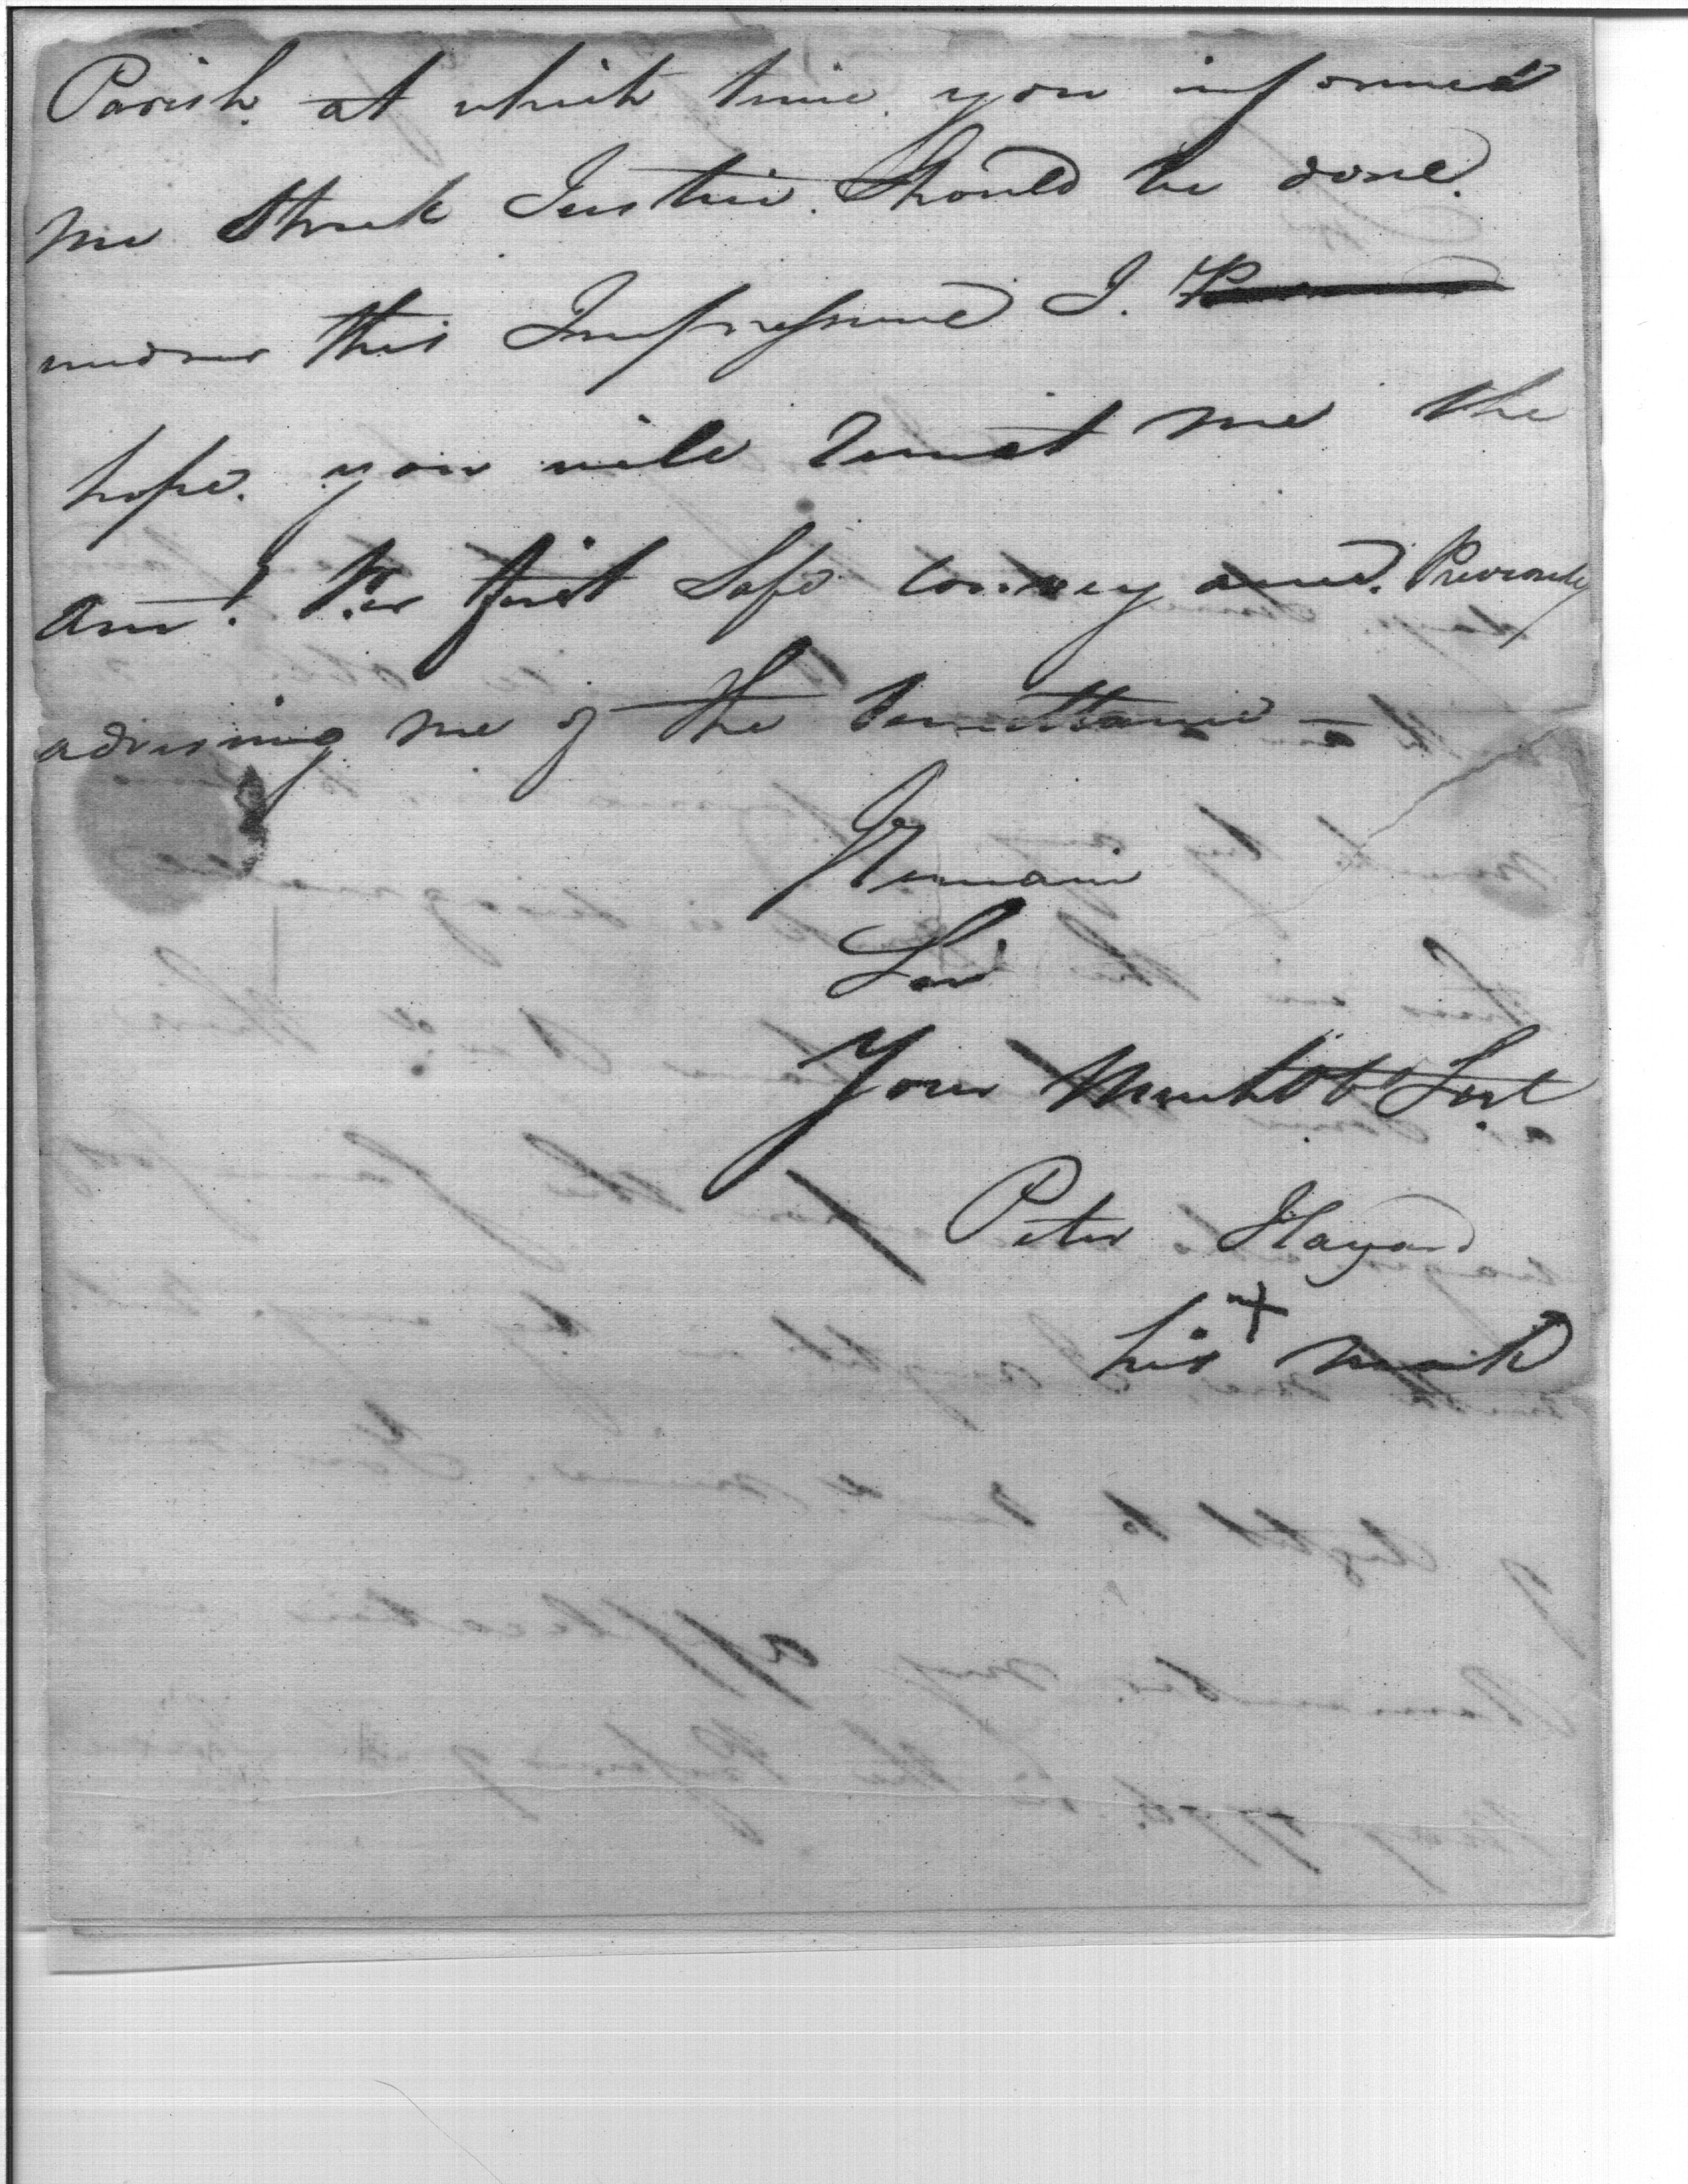 Parish. at which time you informed
me Strick Justice. Should be done.
under this Impressione I.
hope. you will remit me the
Amt. Per first Safe conveyance. Previously
advising me of the remittance —
I Remain
Sir
Your Most Obt Sert
Peter Hayard
his + mark